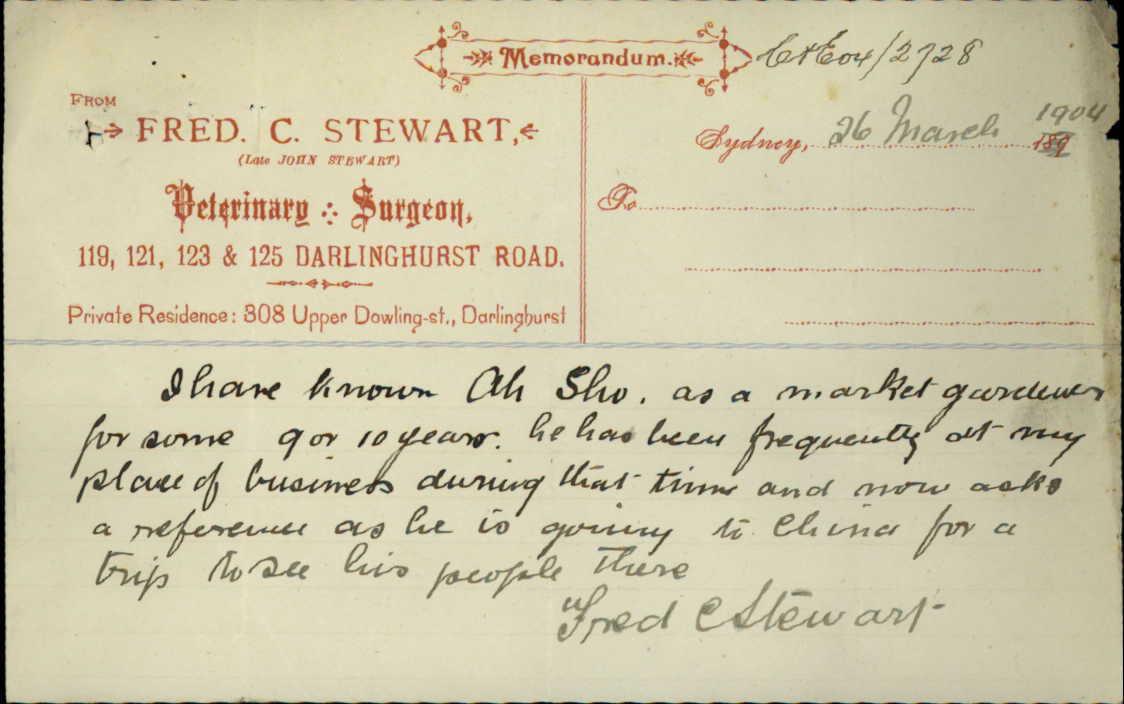 Memorandum.
C&E04/2728
FROM
FRED. C. STEWART,
(Late JOHN STEWART)
Veterinary Surgeon,
119, 121, 123 & 125 DARLINGHURST ROAD.
Private Residence: 308 Upper Dowling-st., Darlinghurst
Sydney, 26 March 1904
189
To
I have known Ah Sho. as a market gardener
for some 9 or 10 years. he has been frequently at my
place of business during that time and now asks
a reference as he is going to China for a
trip to see his people there
Fred C Stewart